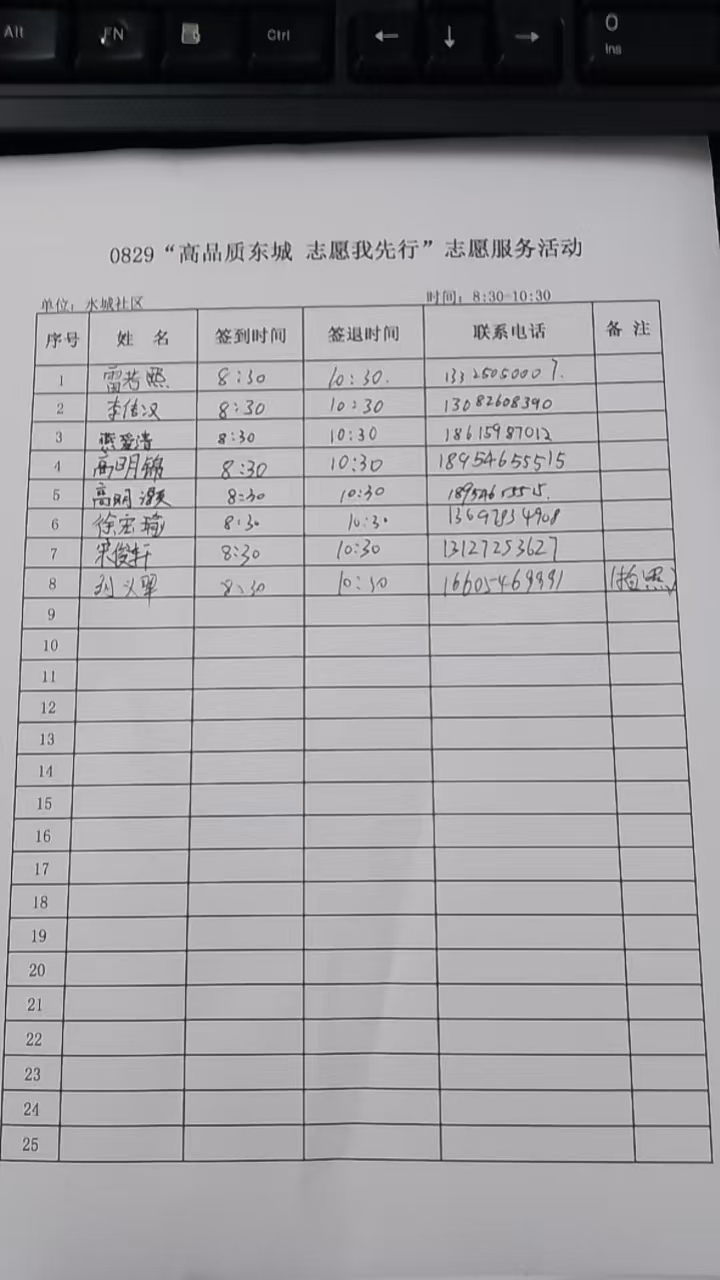 Alt FN Ctrl ← ↓ → 0 Ins
0829“高品质东城 志愿我先行”志愿服务活动
单位：水城社区 时间：8:30-10:30
序号 姓 名 签到时间 签退时间 联系电话 备 注
1 雷若熙 8:30 10:30. 13325050007.
2 李传汉 8:30 10:30 13082608390
3 爱清 8:30 10:30 18615987012
4 高明锦 8:30 10:30 18954655515
5 高明 8:30 10:30
6 徐宏瑜 8:30 10:30 13697834908
7 宋俊轩 8:30 10:30 13127253627
8 刘义 8:30 10:30 (拍照)
9
10
11
12
13
14
15
16
17
18
19
20
21
22
23
24
25